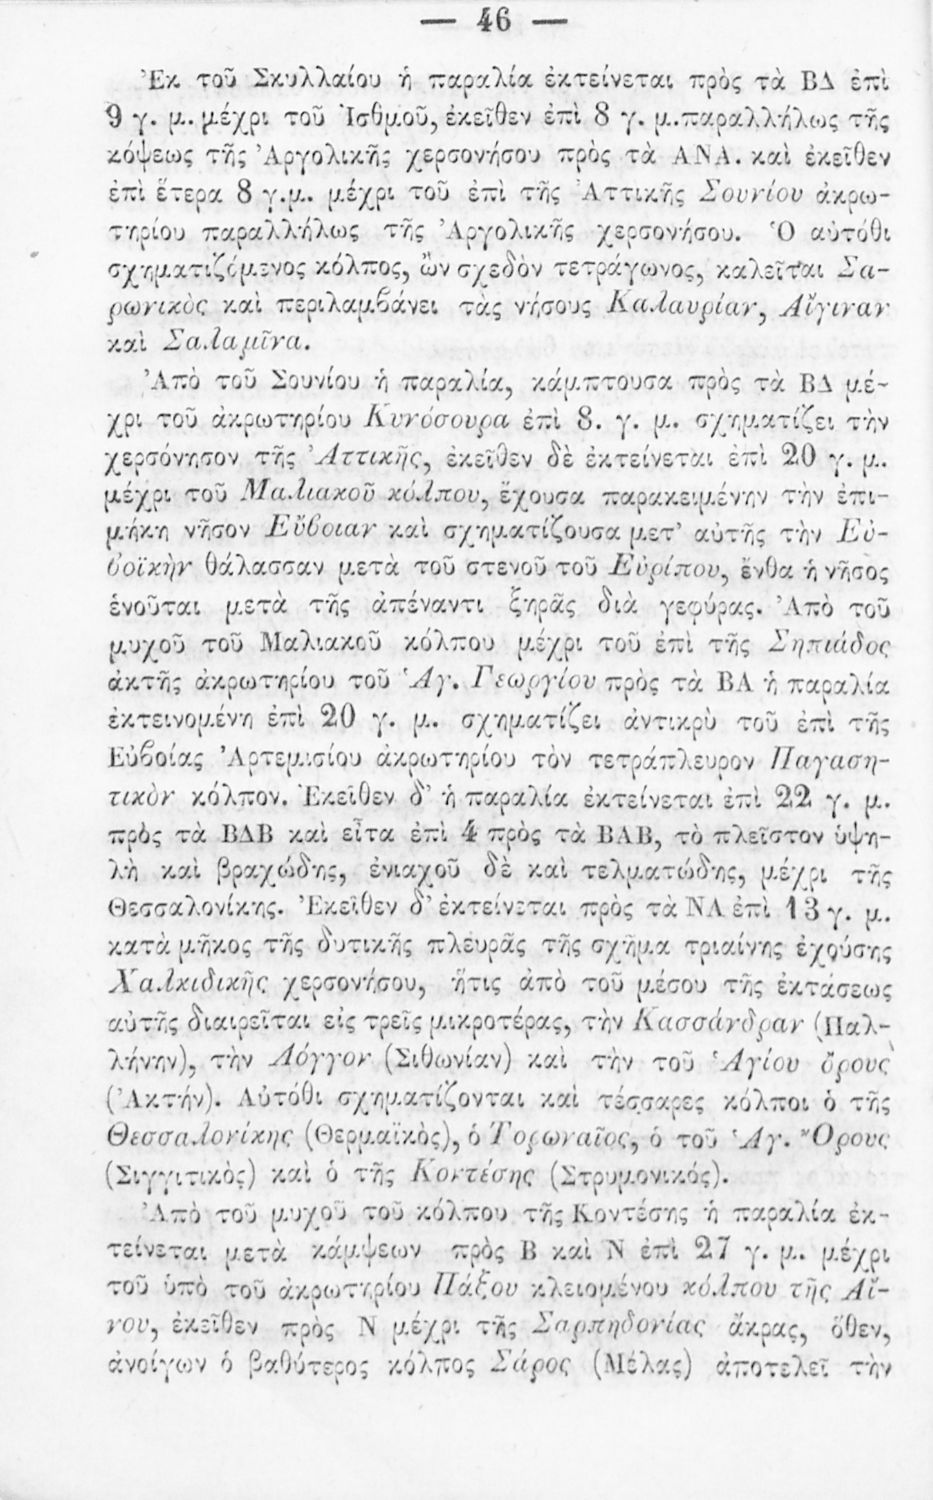 — 46 —
Ἐκ τοῦ Σκυλλαίου ἡ παραλία ἐκτείνεται πρὸς τὰ ΒΔ ἐπὶ
9 γ. μ. μέχρι τοῦ Ἰσθμοῦ, ἐκεῖθεν ἐπὶ 8 γ. μ. παραλλήλως τῆς
κόψεως τῆς Ἀργολικῆς χερσονήσου πρὸς τὰ ΑΝΑ. καὶ ἐκεῖθεν
ἐπὶ ἕτερα 8 γ.μ. μέχρι τοῦ ἐπὶ τῆς Ἀττικῆς Σουνίου ἀκρω-
τηρίου παραλλήλως τῆς Ἀργολικῆς χερσονήσου. Ὁ αὐτόθι
σχηματιζόμενος κόλπος, ὢν σχεδὸν τετράγωνος, καλεῖται Σα-
ρωνικὸς καὶ περιλαμβάνει τὰς νήσους Καλαυρίαν, Αἴγιναν
καὶ Σαλαμῖνα.
Ἀπὸ τοῦ Σουνίου ἡ παραλία, κάμπτουσα πρὸς τὰ ΒΔ μέ-
χρι τοῦ ἀκρωτηρίου Κυνόσουρα ἐπὶ 8. γ. μ. σχηματίζει τὴν
χερσόνησον τῆς Ἀττικῆς, ἐκεῖθεν δὲ ἐκτείνεται ἐπὶ 20 γ. μ.
μέχρι τοῦ Μαλιακοῦ κόλπου, ἔχουσα παρακειμένην τὴν ἐπι-
μήκη νῆσον Εὔβοιαν καὶ σχηματίζουσα μετ' αὐτῆς τὴν Εὐ-
βοϊκὴν θάλασσαν μετὰ τοῦ στενοῦ τοῦ Εὐρίπου, ἔνθα ἡ νῆσος
ἑνοῦται μετὰ τῆς ἀπέναντι ξηρᾶς διὰ γεφύρας. Ἀπὸ τοῦ
μυχοῦ τοῦ Μαλιακοῦ κόλπου μέχρι τοῦ ἐπὶ τῆς Σηπιάδος
ἀκτῆς ἀκρωτηρίου τοῦ Ἁγ. Γεωργίου πρὸς τὰ ΒΑ ἡ παραλία
ἐκτεινομένη ἐπὶ 20 γ. μ. σχηματίζει ἀντικρὺ τοῦ ἐπὶ τῆς
Εὐβοίας Ἀρτεμισίου ἀκρωτηρίου τὸν τετράπλευρον Παγαση-
τικὸν κόλπον. Ἐκεῖθεν δ' ἡ παραλία ἐκτείνεται ἐπὶ 22 γ. μ.
πρὸς τὰ ΒΔΒ καὶ εἶτα ἐπὶ 4 πρὸς τὰ ΒΑΒ, τὸ πλεῖστον ὑψη-
λὴ καὶ βραχώδης, ἐνιαχοῦ δὲ καὶ τελματώδης, μέχρι τῆς
Θεσσαλονίκης. Ἐκεῖθεν δ' ἐκτείνεται πρὸς τὰ ΝΑ ἐπὶ 13 γ. μ.
κατὰ μῆκος τῆς δυτικῆς πλευρᾶς τῆς σχῆμα τριαίνης ἐχούσης
Χαλκιδικῆς χερσονήσου, ἥτις ἀπὸ τοῦ μέσου τῆς ἐκτάσεως
αὐτῆς διαιρεῖται εἰς τρεῖς μικροτέρας, τὴν Κασσάνδραν (Παλ-
λήνην), τὴν Λόγγον (Σιθωνίαν) καὶ τὴν τοῦ Ἁγίου ὄρους
(Ἀκτήν). Αὐτόθι σχηματίζονται καὶ τέσσαρες κόλποι ὁ τῆς
Θεσσαλονίκης (Θερμαϊκὸς), ὁ Τορωναῖος, ὁ τοῦ Ἁγ. Ὄρους
(Σιγγιτικὸς) καὶ ὁ τῆς Κοντέσης (Στρυμονικός).
Ἀπὸ τοῦ μυχοῦ τοῦ κόλπου τῆς Κοντέσης ἡ παραλία ἐκ-
τείνεται μετὰ κάμψεων πρὸς Β καὶ Ν ἐπὶ 27 γ. μ. μέχρι
τοῦ ὑπὸ τοῦ ἀκρωτηρίου Πάξου κλειομένου κόλπου τῆς Αἴ-
νου, ἐκεῖθεν πρὸς Ν μέχρι τῆς Σαρπηδονίας ἄκρας, ὅθεν,
ἀνοίγων ὁ βαθύτερος κόλπος Σάρος (Μέλας) ἀποτελεῖ τὴν